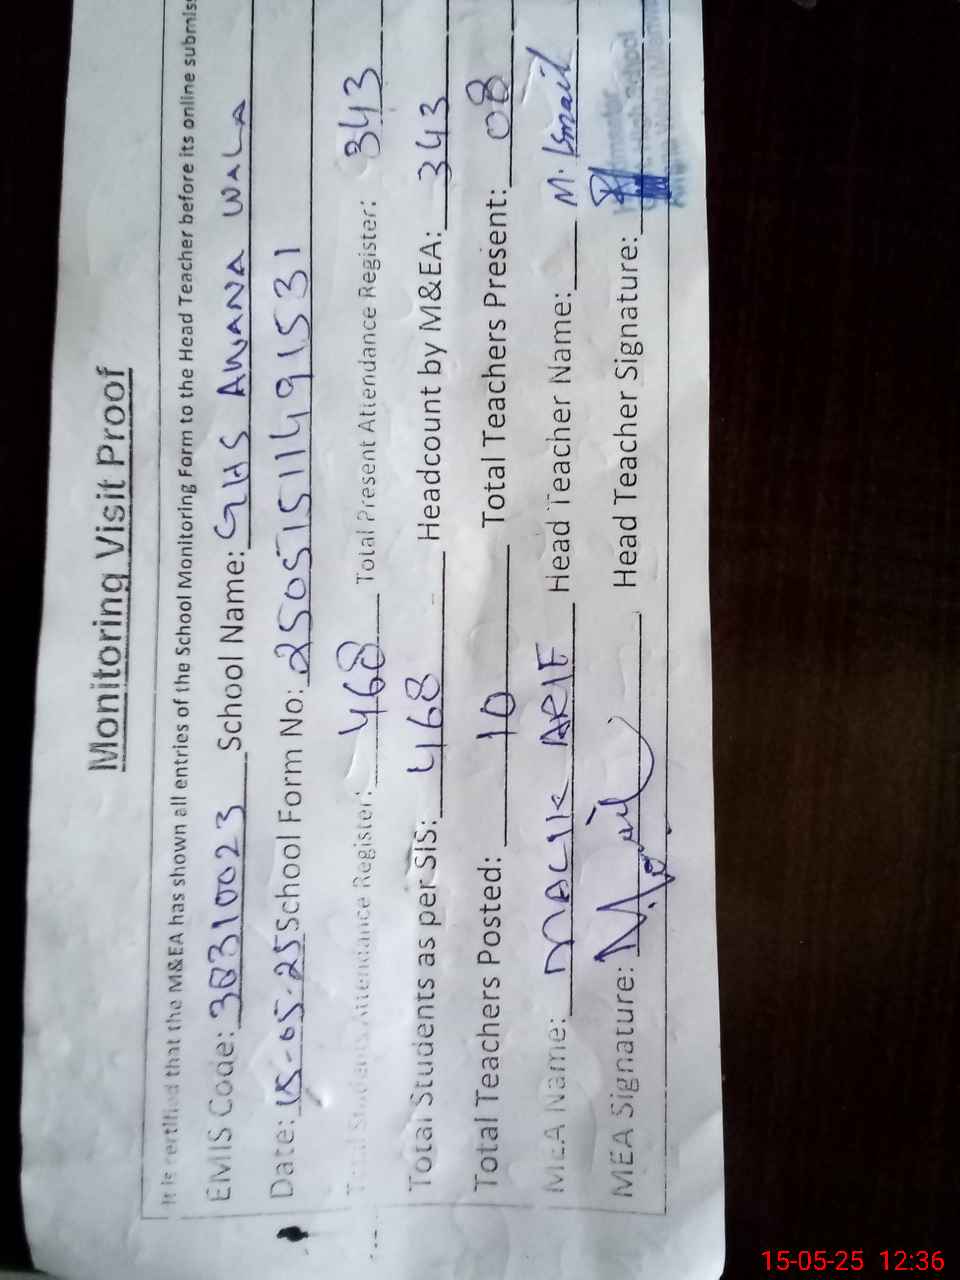 Monitoring Visit Proof
It is certified that the M&EA has shown all entries of the School Monitoring Form to the Head Teacher before its online submiss
EMIS Code: 38310023 School Name: GHS AWANA WALA
Date: 15-05-25 School Form No: 250515114919531
Total Students Attendance Register: 468 Total Present Attendance Register: 343
Total Students as per SIS: 468 Headcount by M&EA: 343
Total Teachers Posted: 10 Total Teachers Present: 08
MEA Name: MALIK ARIF Head Teacher Name: M. Ismail
MEA Signature: Head Teacher Signature:
15-05-25 12:36